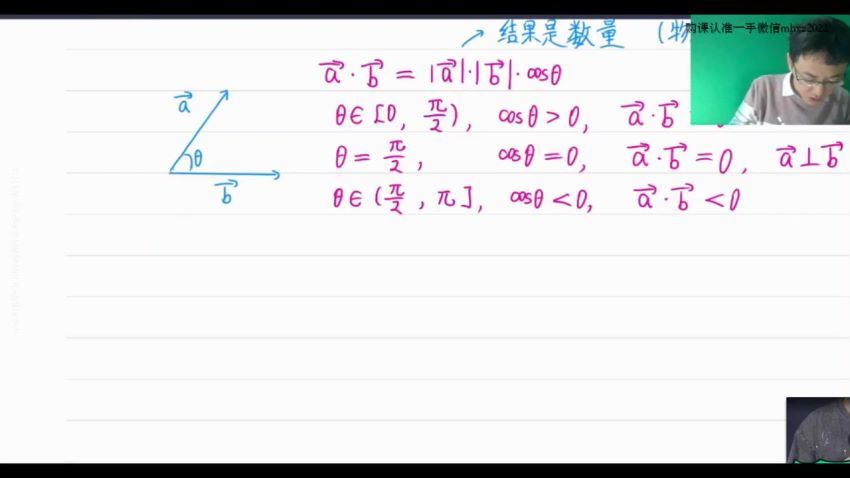 ↗ 结果是数量 (物
购课认准一手微信mhxx2022
→a · →b = |→a|·|→b|·cosθ
→a
θ∈[0, π/2), cosθ>0, →a·→b
θ
θ=π/2, cosθ=0, →a·→b=0, →a⊥→b
→b
θ∈(π/2, π], cosθ<0, →a·→b<0